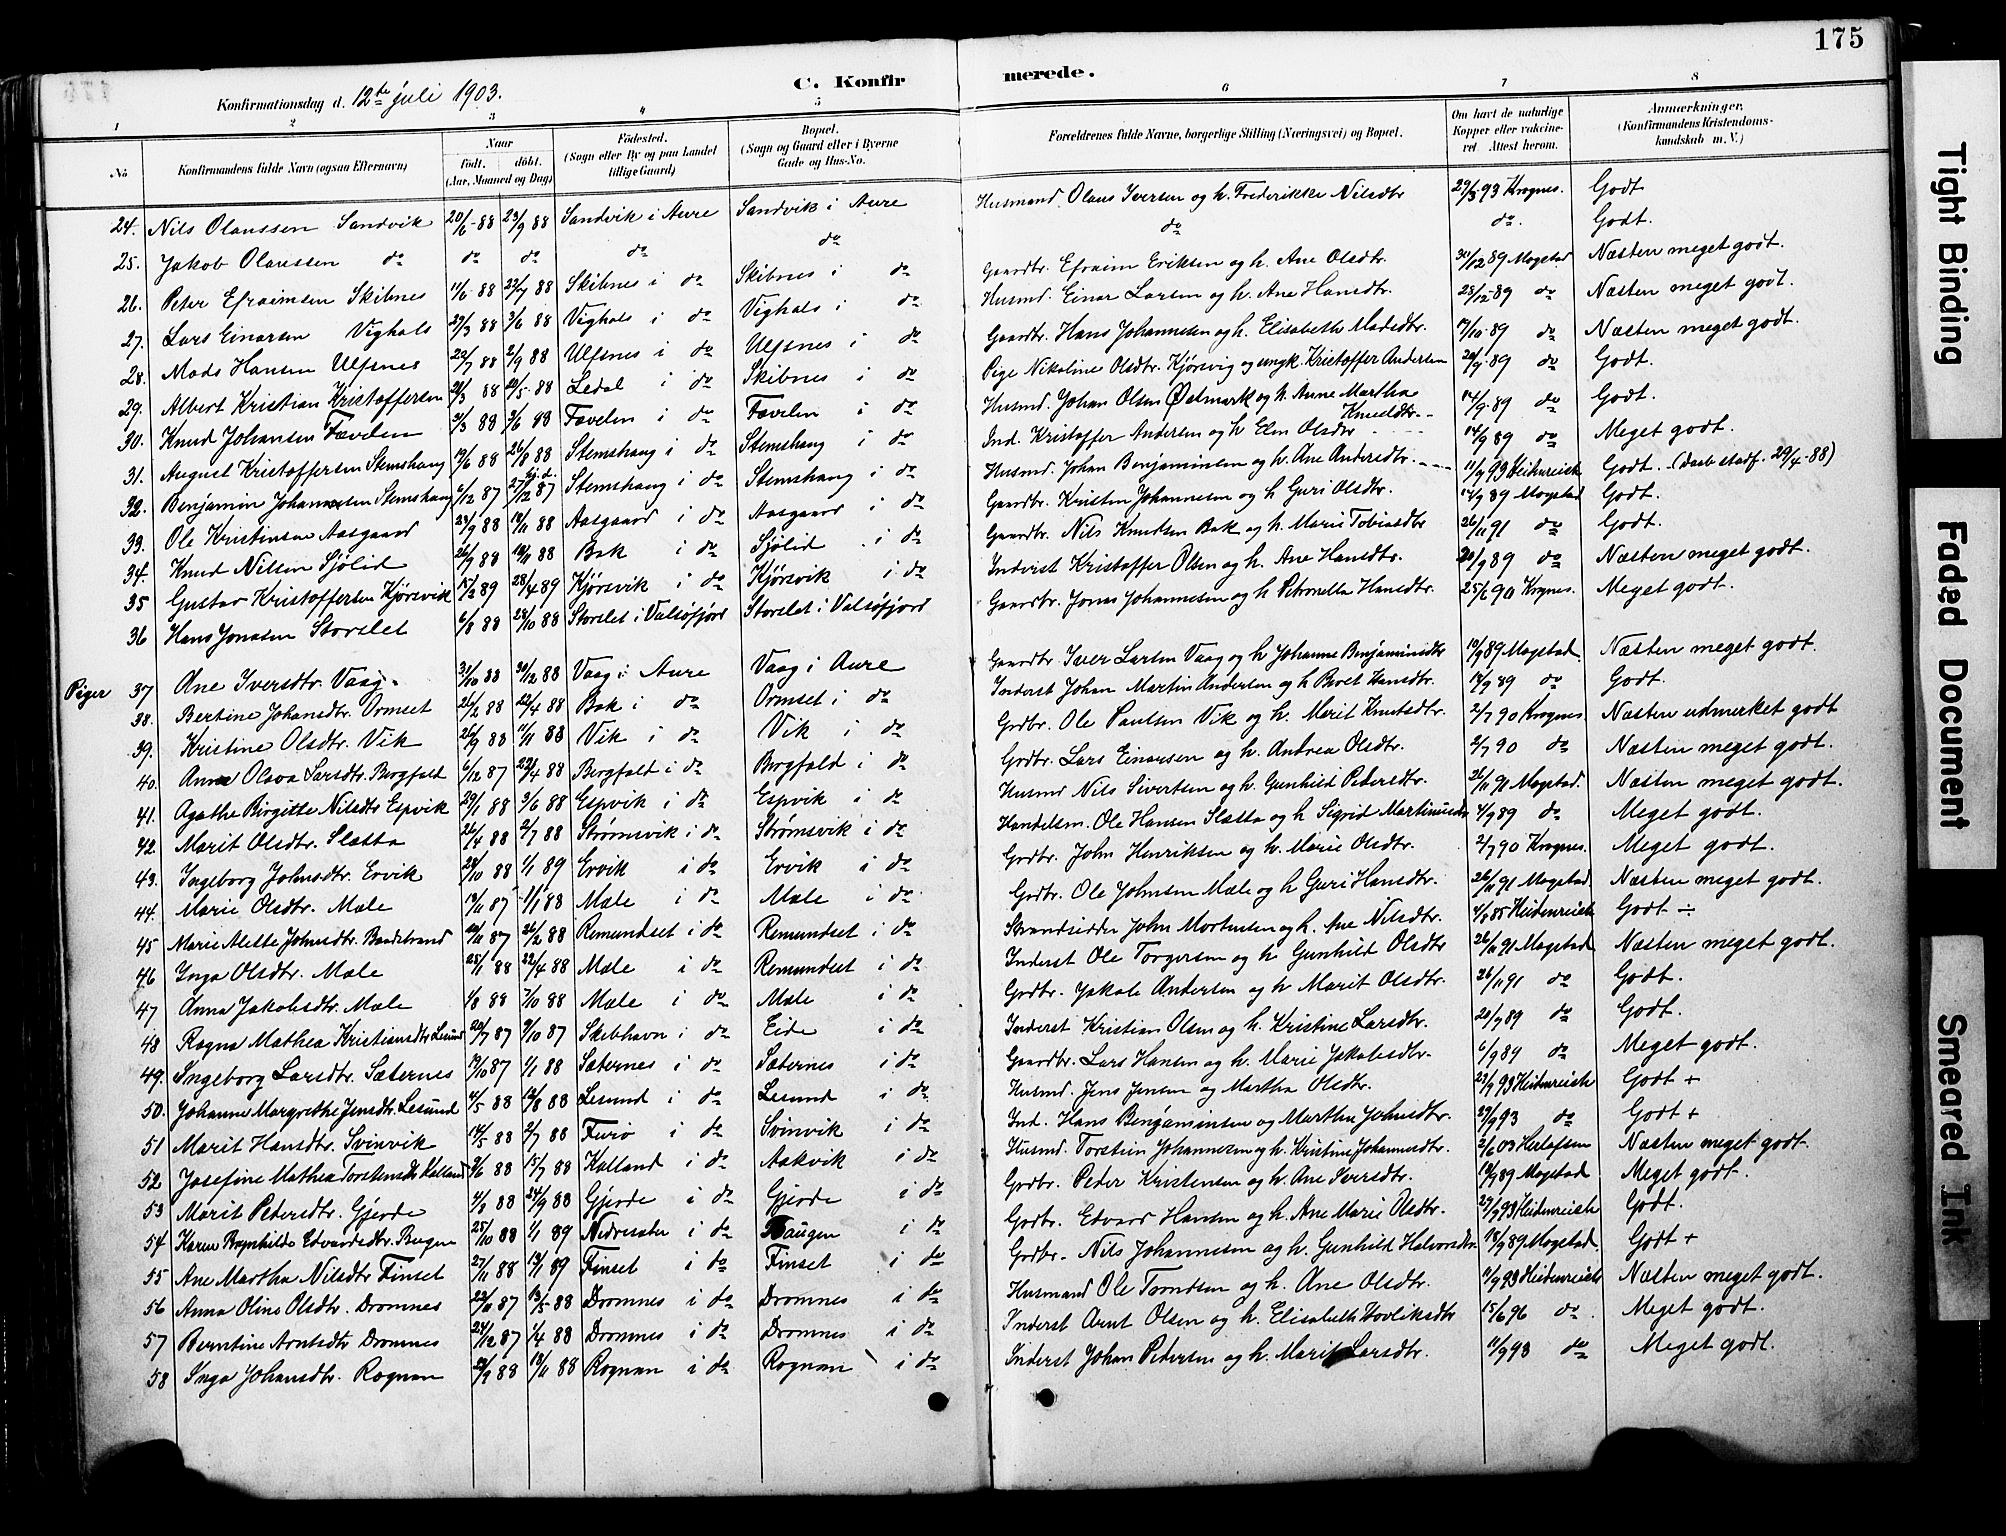 175
C. Konfirmerede.
Konfirmationsdag d. 12te juli 1903.
1 2 3 4 5 6 7 8
No Konfirmandens fulde Navn (ogsaa Efternavn) Naar födt. döbt. (Aar, Maaned og Dag) Födested. (Sogn eller By og paa Landet tillige Gaard) Bopæl. (Sogn og Gaard eller i Byerne Gade og Hus-No. Forældrenes fulde Navne, borgerlige Stilling (Næringsvei) og Bopæl. Om havt de naturlige Kopper eller vakcineret Attest herom. Anmærkninger. (Konfirmandens Kristendomskundskab m. V.)
24. Nils Olaussen Sandvik 20/6 88 23/9 88 Sandvik i Aure Sandvik i Aure Husmand Olaus Iversen og h. Frederikke Nilsdtr 29/8 93 Krognes. Godt
25. Jakob Olaussen do do do do do do do. Godt.
26. Peter Efraimsen Skibnes 11/6 88 22/7 88 Skibnes i do Skibnes i do Gaardbr. Efraim Eriksen og h. Ane Olsdtr. 30/12 89 Mogstad Næsten meget godt.
27. Lars Einarsen Vighals 27/3 88 3/6 88 Vighals i do Vighals i do Husmd. Einar Larsen og h. Ane Hansdtr. 28/12 89 do Næsten meget godt.
28. Mads Hansen Ulfsnes 22/7 88 2/9 88 Ulfsnes i do Ulfsnes i do Gaardbr. Hans Johannesen og h. Elisabeth Madsdtr. 17/10 89 do Næsten meget godt.
29. Albert Kristian Kristoffersen 21/3 88 20/5 88 Ledal i do Skibnes i do Pige Nikoline Olsdtr. Kjörsvig og ungk. Kristoffer Andersen 20/9 89 do Godt.
30. Knud Johansen Fævelen 31/3 88 3/6 88 Fævelen i do Fævelen i do Husmd. Johan Olsen Østmark og h. Anne Martha Knudsdtr. 14/9 89 do Godt.
31. August Kristoffersen Stemshaug 19/6 88 26/8 88 Stemshaug i do Stemshaug i do Ind. Kristoffer Andersen og h Elen Olsdtr 14/9 89 do Meget godt.
32. Benjamin Johansen Stemshaug 5/12 87 27/12 87 hj.d. Stemshaug i do Stemshaug i do Husmd. Johan Benjaminsen og h. Ane Andersdtr. 11/9 93 Heidenreich Godt. (daab stadf. 29/4-88)
33. Ole Kristensen Aasgaard 24/9 88 18/11 88 Aasgaard i do Aasgaard i do Gaardbr. Kristen Johannesen og h Guri Olsdtr. 14/9 89 Mogstad Godt.
34. Knud Nilsen Sjölid 26/9 88 18/11 88 Bak i do Sjölid i do Gaardbr. Nils Knudsen Bak og h. Marie Tobiasdtr 26/11 91 do Godt.
35 Gustav Kristoffersen Kjörsvik 15/2 89 28/4 89 Kjörsvik i do Kjörsvik i do Indvist Kristoffer Olsen og h. Ane Hansdtr. 20/9 89 do Næsten meget godt.
36 Hans Jonasen Storslet 6/8 88 28/10 88 Storslet i Valsöfjord Storslet i Valsöfjord Gaardbr. Jonas Johannesen og h Petronella Hansdtr. 25/6 90 Krognes. Meget godt.
Piger 37 Ane Iversdtr. Vaag. 31/10 88 30/12 88 Vaag i Aure Vaag i Aure Gaardbr Iver Larsen Vaag og h Johanne Benjaminsdtr 19/9 89 Mogstad. Næsten meget godt.
38. Bertine Johansdtr. Ormset 26/2 88 22/4 88 Bak i do Ormset i do Inderst Johan Martin Andersen og h Beret Hansdtr. 14/9 89 do Godt.
39. Kristine Olsdtr. Vik 26/9 88 11/11 88 Vik i do Vik i do Grdbr. Ole Paulsen Vik og h. Marit Knutsdtr. 2/7 90 Krognes. Næsten udmerket godt
40. Anna Olava Larsdtr. Bergfald 6/12 87 22/4 88 Bergfald i do Bergfald i do Grdbr. Lars Einarsen og h. Andrea Olsdtr. 2/7 90 do Næsten meget godt.
41. Agathe Birgitte Nilsdtr Espvik 29/1 88 3/6 88 Espvik i do Espvik i do Husmd Nils Sivertsen og h. Gunhild Pedersdtr. 26/11 91 Mogstad. Næsten meget godt.
42. Marit Olsdtr. Slatta 26/4 88 2/7 88 Strømsvik i do Strømsvik i do Handelsm. Ole Hansen Slatta og h Sigrid Martinusdtr 4/9 89 do Meget godt.
43. Ingeborg Johnsdtr. Ervik 28/10 88 1/1 89 Ervik i do Ervik i do Grdbr. John Henriksen og h. Marie Olsdtr. 2/7 90 Krognes. Meget godt.
44. Marie Olsdtr. Mæle 19/11 87 1/1 88 Mæle i do Mæle i do Grdbr. Ole Johnsen Mæle og h Guri Hansdtr. 26/11 91 Mogstad. Næsten meget godt.
45 Marie Alette Johnsdtr. Baadstrand 20/11 87 26/2 88 Remundset i do Remundset i do Strandsidder John Mortensen og h. Ane Nilsdtr. 4/8 85 Heidenreich Godt ÷
46 Inga Olsdtr. Mæle 25/1 88 22/4 88 Mæle i do Remundset i do Inderst Ole Torgersen og h Gunhild Olsdtr 26/11 91 Mogstad Næsten meget godt.
47 Anna Jakobsdtr. Mæle 4/8 88 7/10 88 Mæle i do Mæle i do Grdbr. Jakob Andersen og h Marit Olsdtr. 26/11 91 do Godt.
48 Ragna Mathea Kristiansdtr Lesund 20/7 87 9/10 87 Skibhavn i do Eide i do Inderst Kristian Olsen og h. Kristine Larsdtr. 20/9 89 do Godt.
49. Ingeborg Larsdtr. Sæternes 19/10 87 1/1 88 Sæternes i do Sæternes i do Gaardbr. Lars Hansen og h. Marie Jakobsdtr. 6/9 89 do Meget godt.
50. Johanne Margrethe Jensdtr. Lesund 4/5 88 12/8 88 Lesund i do Lesund i do Husmd. Jens Jensen og Martha Olsdtr. 23/9 93 Heidenreich Godt +
51 Marit Hansdtr. Svinvik 14/5 88 2/7 88 Furø i do Svinvik i do Ind. Hans Benjaminsen og Martha Johnsdtr. 27/9 93 do Godt +
52 Josefine Mathea Torstensdtr Kalland 9/6 88 15/7 88 Kalland i do Aakvik i do Husmd. Torstein Johannesen og h. Kristine Johannesdtr. 2/6 03 Herlofsen Næsten meget godt.
53 Marit Pedersdtr. Gjerde 4/8 88 24/9 88 Gjerde i do Gjerde i do Grdbr. Peder Kristensen og h. Ane Iversdtr. 19/9 89 Mogstad Meget godt.
54 Karen Ragnhilda Edvardsdtr. Bugen 25/10 88 1/1 89 Nedresæter i do Baugen i do Grdbr. Edvard Hansen og h. Ane Marie Olsdtr. 27/9 93 Heidenreich Godt.
55 Ane Martha Nilsdtr Finset 27/11 88 13/1 89 Finset i do Finset i do Grdbr. Nils Johannesen og h. Gunhild Halvorsdtr. 18/9 89 Mogstad. Godt +
56 Anna Oline Olsdtr. Dromnes 22/11 87 13/5 88 Dromnes i do Dromnes i do Husmand Ole Trondsen og h. Ane Olsdtr. 11/9 93 Heidenreich Næsten meget godt.
57 Berntine Arntsdtr Dromnes 24/12 87 1/4 88 Dromnes i do Dromnes i do Inderst Arnt Olsen og h. Elisabeth Hovliksdtr 15/6 96 do Meget godt.
58 Inga Johansdtr. Rognan 24/9 88 18/11 88 Rognan i do Rognan i do Inderst Johan Pedersen og h. Marit Larsdtr. 11/9 93 do Meget godt.
Tight Binding
Faded Document
Smeared Ink